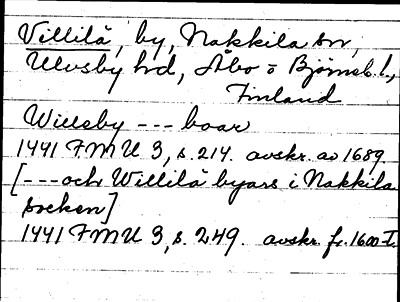 Villilä, by, Nakkila sn,
Ulvsby hd, Åbo o Björneb. l.,
Finland
Willsby --- boar
1441 FMU 3, s. 214. avskr. av 1689
[--- och Willilä byars i Nakkila
socken]
1441 FMU 3, s. 249. avskr. fr. 1600-t.